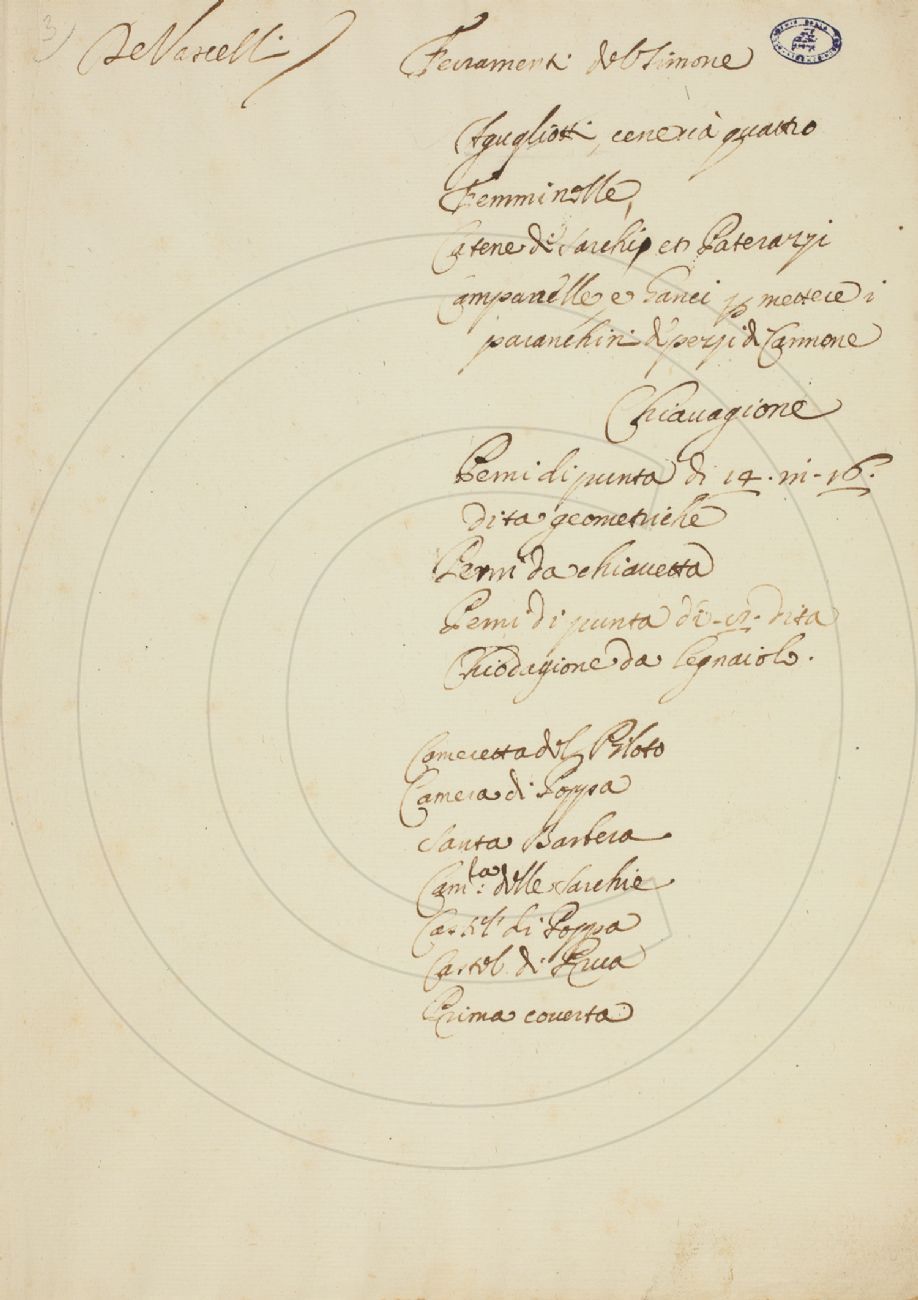 3)
De Vascelli
Ferramenti del Timone
Agugliotti, cenerià quattro
Femminelle,
Catene di Sarchie et Paterazzi
Campanelle, e Ganci p mettere i
paranchini di pezzi di Cannone
Chiavagione
Perni di punta di 14. in. 16.
dita geometriche
Perni da chiavetta
Perni di punta di 12. dita
Chiodagione da legnaiolo.
Cameretta del Piloto
Camera di Poppa
Santa Barbera
Cam.ta: delle Sarchie
Castel di Poppa
Castel di Prua
Prima coverta